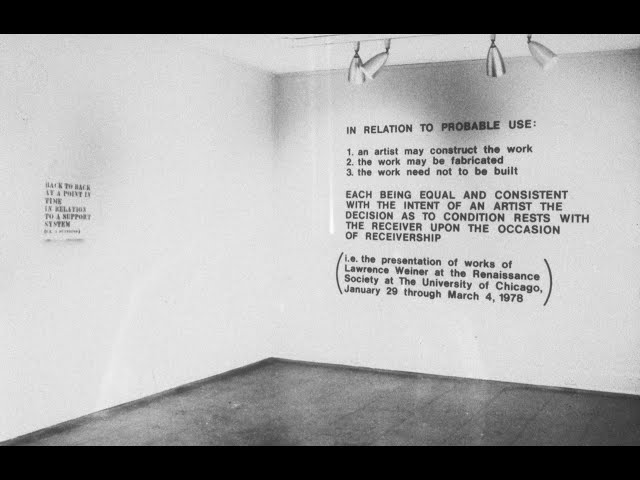 BACK TO BACK
AT A POINT IN
TIME
IN RELATION
TO A SUPPORT
SYSTEM
IN RELATION TO PROBABLE USE:
1. an artist may construct the work
2. the work may be fabricated
3. the work need not to be built
EACH BEING EQUAL AND CONSISTENT
WITH THE INTENT OF AN ARTIST THE
DECISION AS TO CONDITION RESTS WITH
THE RECEIVER UPON THE OCCASION
OF RECEIVERSHIP
(i.e. the presentation of works of
Lawrence Weiner at the Renaissance
Society at The University of Chicago,
January 29 through March 4, 1978)